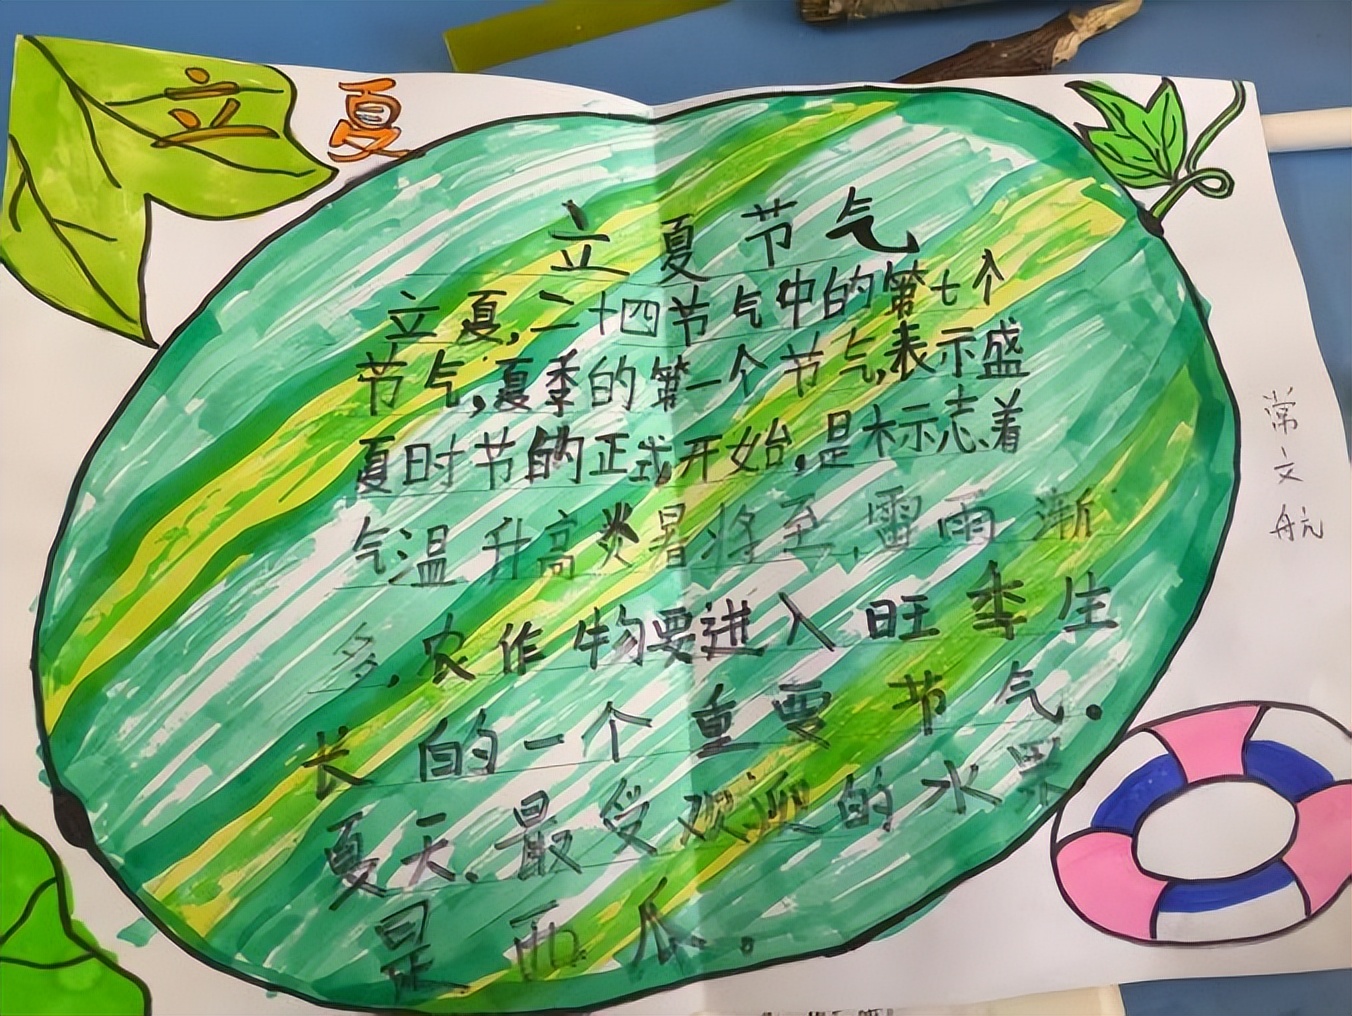 立夏
立夏节气
立夏,二十四节气中的第七个
节气,夏季的第一个节气,表示盛
夏日时节的正式开始,是标志着
气温升高炎暑将至,雷雨渐
多,农作物要进入旺季生
长的一个重要节气.
夏天、最受欢迎的水果
是西瓜.。
常文航